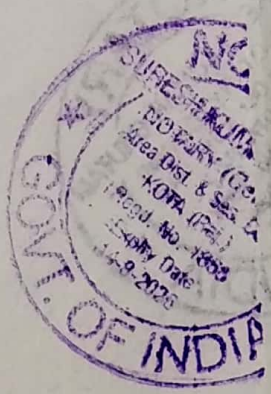 NO
SURESH KUMA
NOTARY (Ce
Area Dist. & Ses.
KOTA (Raj.)
Regd. No.-1863
Expiry Date
14-9-2026
GOVT. OF INDIA